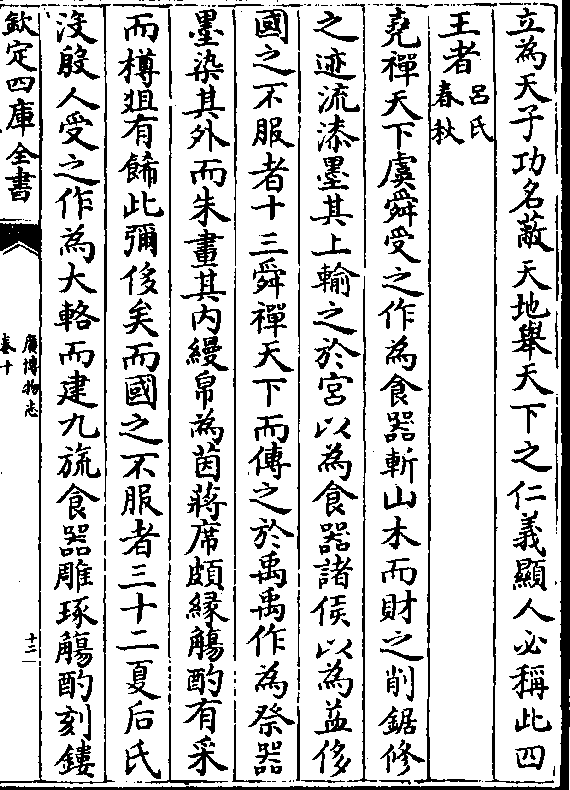 立為天子功名蔽天地舉天下之仁義顯人必稱此四
王者呂氏春秋
堯禪天下虞舜受之作為食器斬山木而財之削鋸修
之迹流漆墨其上輸之於宮以為食器諸侯以為益侈
國之不服者十三舜禪天下而傳之於禹禹作為祭器
墨染其外而朱畫其內縵帛為茵蔣席頗緣觴酌有采
而樽俎有餙此彌侈矣而國之不服者三十二夏后氏
沒殷人受之作為大輅而建九旒食器雕琢觴酌刻鏤
欽定四庫全書
廣博物志
卷十
十三